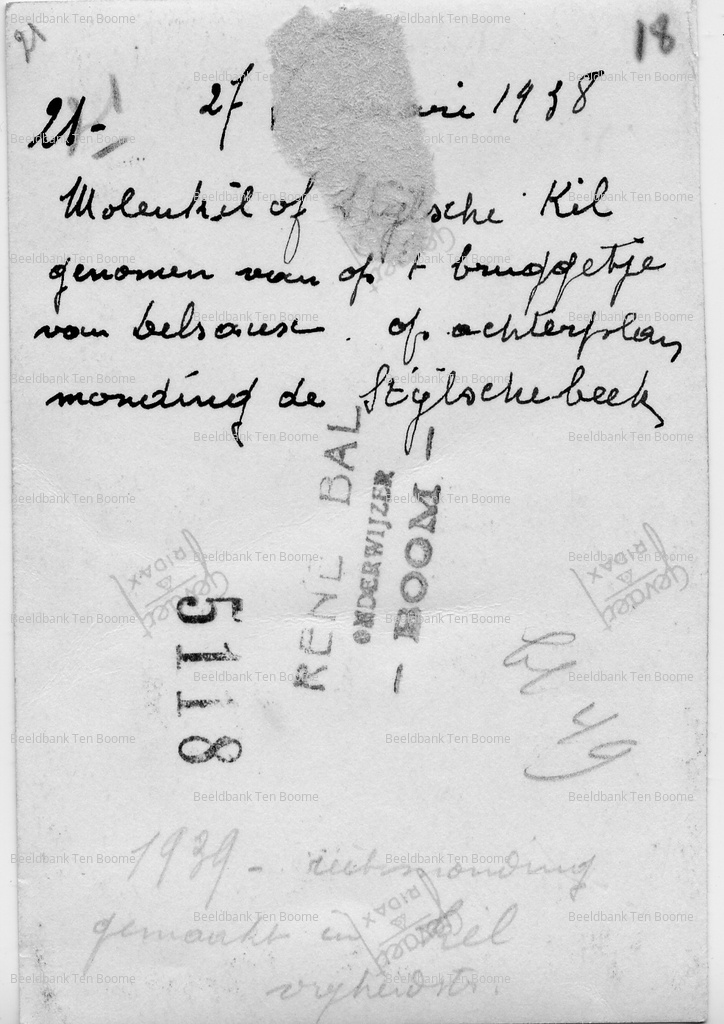 21
18
21-
27 ari 1938
Molenkil of Stijlsche Kil
genomen van op t bruggetje
van Delsaux. op achterplan
monding de Stijlschebeek
RENE BAL
ONDERWIJZER
- BOOM -
Gevaert
RIDAX
Gevaert
RIDAX
5118
49
1939 - rietsmonding
gemaakt in Kil
vrijheidstr.
Gevaert
RIDAX
Beeldbank Ten Boome